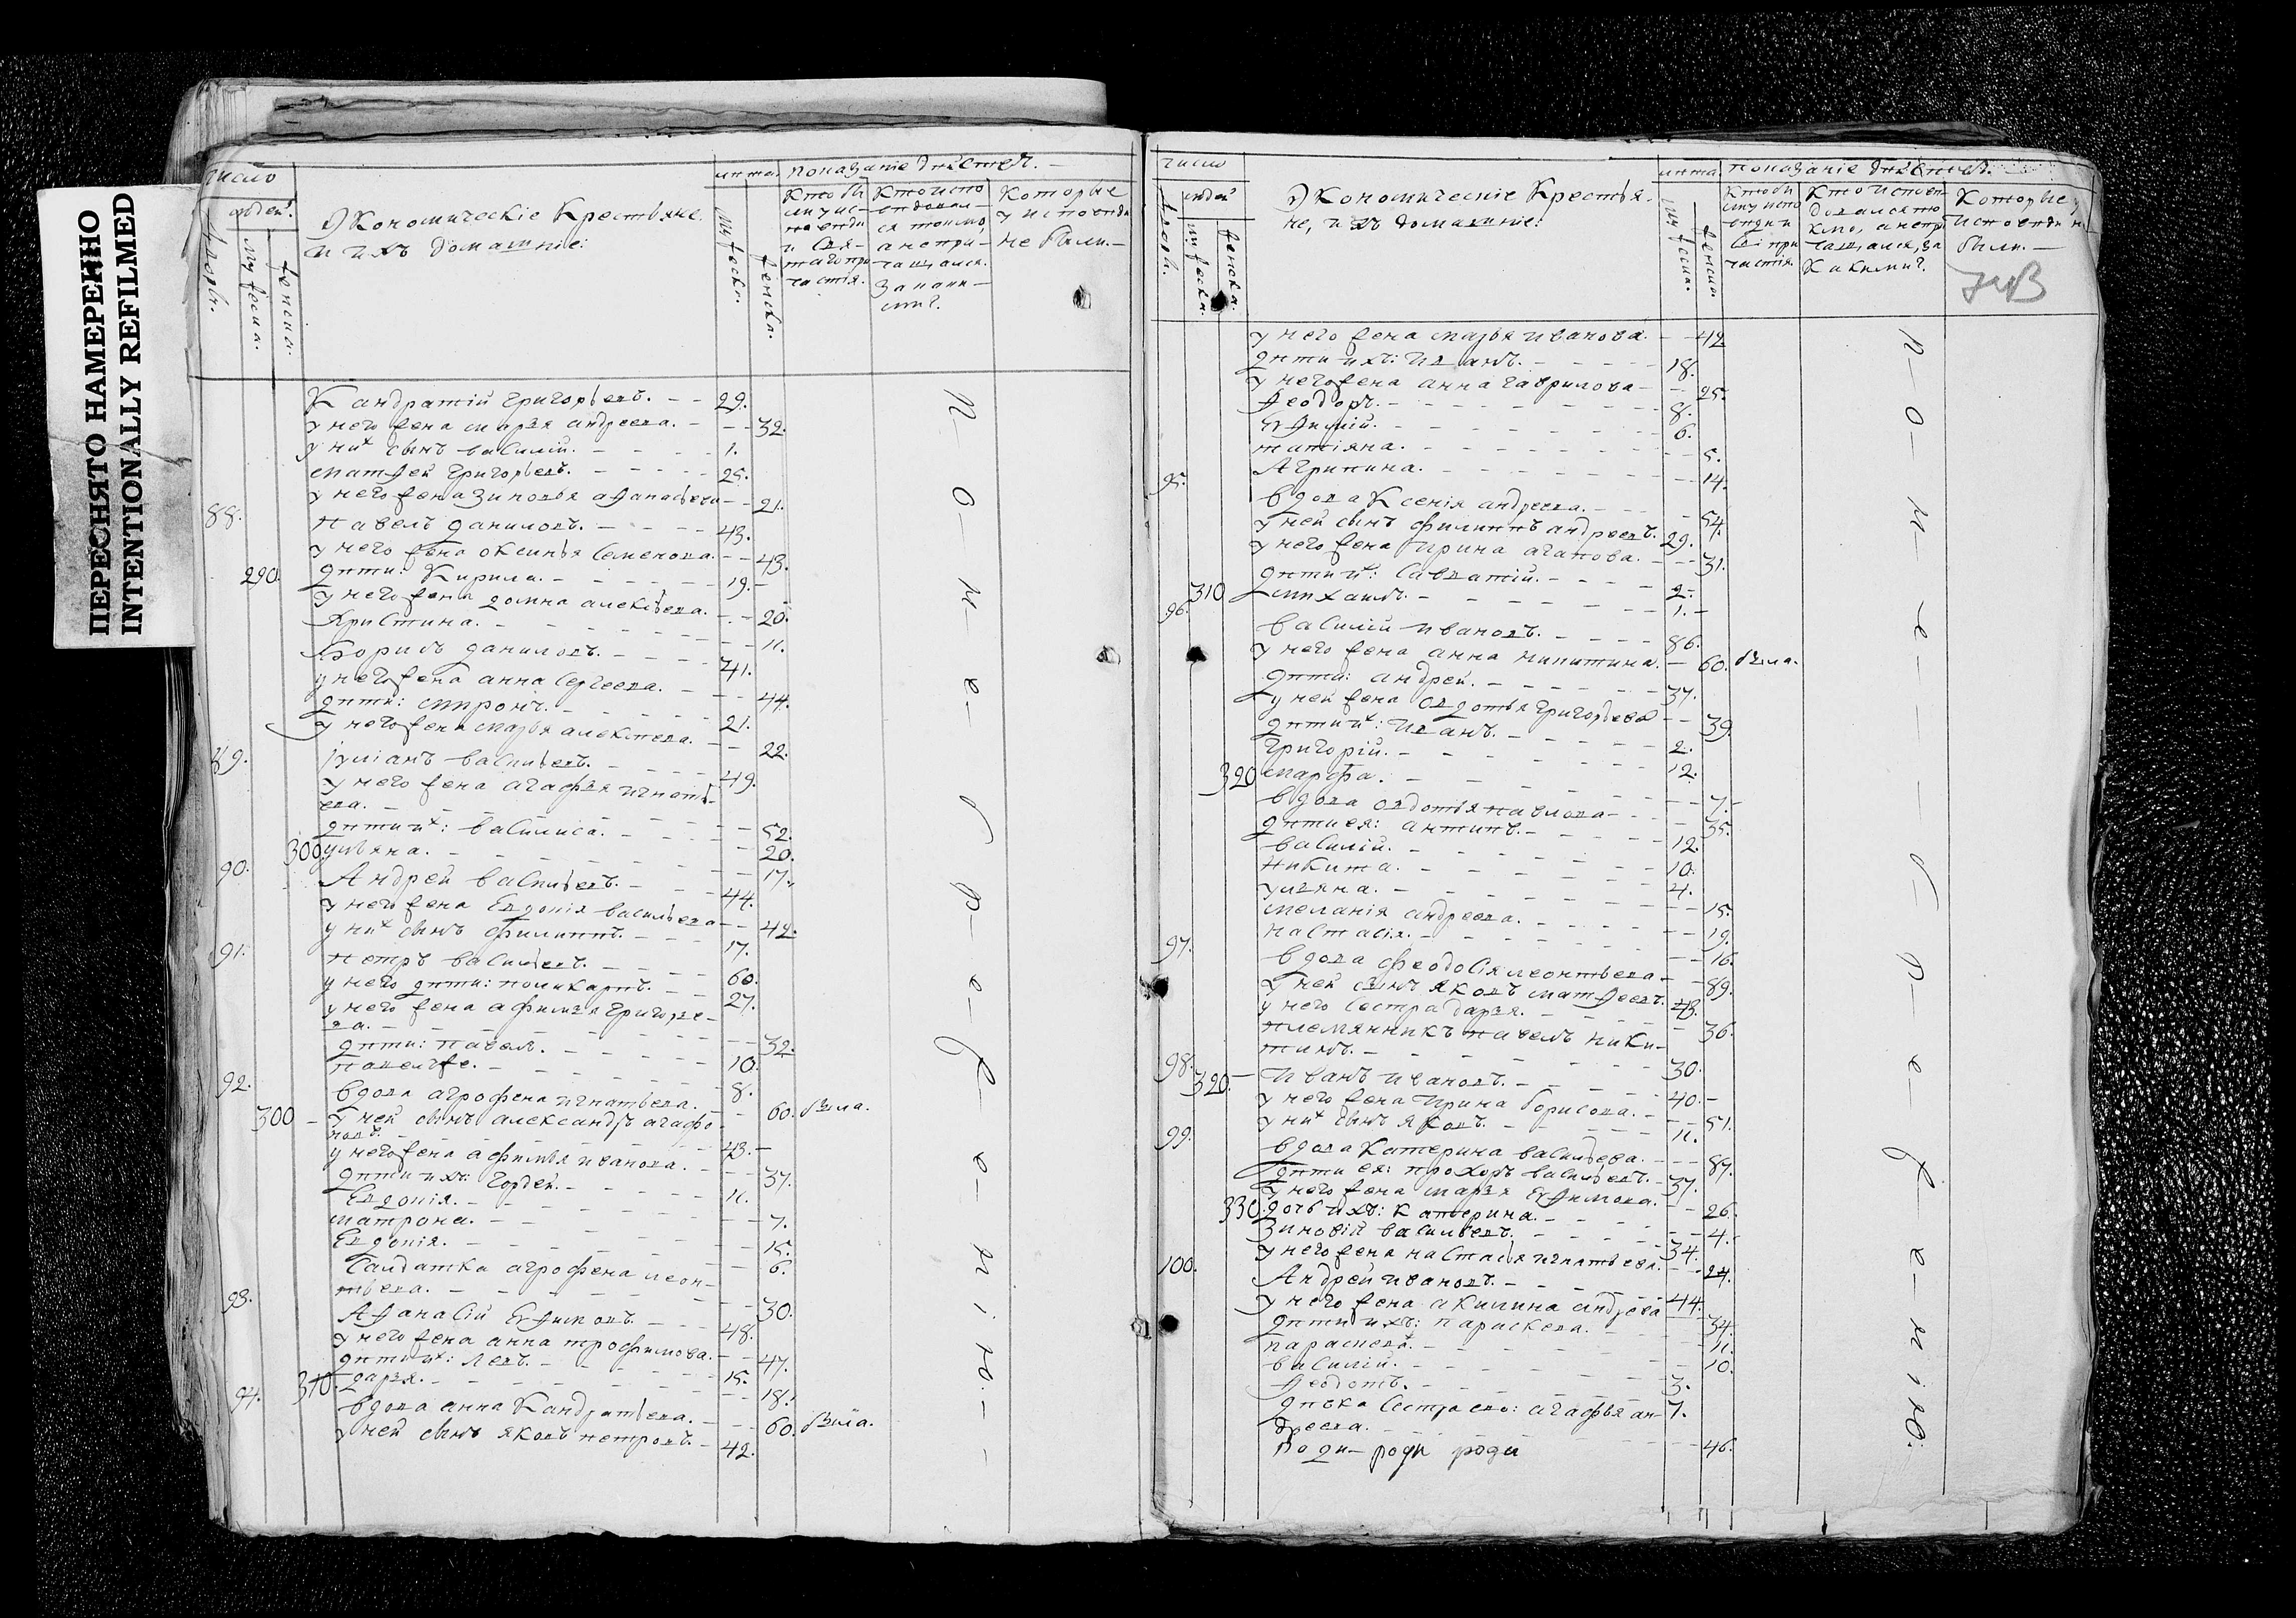 ПЕРЕСНЯТО НАМЕРЕННО
INTENTIONALLY REFILMED
число
людей.
дворы.
мужеска.
женска.
Экономическіе Крестьяне.
и ихъ домашніе:
лѣта.
мужеска.
женска.
показаніе дѣйствъ. —
Которые
у исповѣди
не были. —
Кандратій григорьевъ. — — 29.
у него жена марья андреева. — — — 32.
у них сынъ василій. — — — 1.
матѳей григорьевъ. — — — 25.
у него жена зиновья аѳанасьева — — 21.
88. павелъ даниловъ. — — — 43.
у него жена оксинья Семенова. — — 43.
290. дѣти: Кирила. — — — 19. —
у него жена домна алексѣева. — — 20.
Христина. — — — — 11.
Борисъ даниловъ. — — — 41.
у него жена анна Сергеева. — — — 44.
дѣти: миронъ. — — — 21.
у него жена марья алексѣева. — — 22.
89. іуліанъ васильевъ. — — — 49.
у него жена агафья игнать-
ева. — — — — 52.
дѣти их: василиса. — — — 20.
300 ульяна. — — — — 17.
90. Андрей васильевъ. — — — 44.
у него жена Евдокія васильева — — 42.
у них сынъ филиппъ. — — — 17.
91. петръ васильевъ. — — — 60.
у него дѣти: поликарпъ. — — 27.
у него жена афимья григорье-
ва. — — — — 32.
дѣти: павелъ. — — — 10.
павелъ же. — — — 8.
92. вдова агрофена игнатьева. — — 60. была.
300 — у ней сынъ александръ агафо-
новъ. — — — 43. —
у него жена афимья иванова. — — 37.
дѣти ихъ: гордей. — — — 11.
Евдокія. — — — — 7.
матрона. — — — — 15.
Евдокія. — — — — 6.
Салдатка агрофена леон-
тьева. — — — — 30.
93. Аѳанасій Евѳимовъ. — — — 48.
у него жена анна трофимова. — — 47.
дѣти их: левъ. — — — 15.
310. дарья. — — — — 18.
94. вдова анна Кандратьева. — — 60. была.
у ней сынъ яковъ петровъ. — 42.
п — о — н — е — б — р — е — ж — е — н — і — ю. —
число
людей
дворы.
мужеска.
женска.
Экономическіе Крестья-
не, и ихъ домашніе:
лѣта
мужеска.
женска.
показаніе дѣйствъ.
Которые у
исповѣди не
были. —
у него жена марья иванова. — — 42
дѣти ихъ: Иванъ. — — — 18.
у него жена анна гаврилова — — 25.
ѳеодоръ. — — — — 8.
Евѳимій. — — — — 6.
татіяна. — — — — 5.
Агрипина. — — — — 14.
95. вдова Ксенія андреева. — — — 54.
у ней сынъ филиппъ андреевъ. 29.
у него жена Ирина агапова. — — 31.
дѣти их: Савватій. — — — 2.
310 михаилъ. — — — 1. —
96. василій ивановъ. — — — 86.
у него жена анна никитина. — 60. была.
дѣти: андрей. — — — 37.
у ней жена овдотья григорьева — — 39.
дѣти их: Иванъ. — — — 2.
григорій. — — — — 12.
320 марфа. — — — — 7. —
вдова овдотья павлова — — — 35.
дѣти ея: антипъ. — — — 12.
василій. — — — — 10.
никита. — — — — 4.
ульяна. — — — — 15.
меланія андреева. — — — 19.
настасія. — — — — 16.
97. вдова феодосія леонтьева — — 89.
у ней сынъ яковъ матѳеевъ. 43.
у него сестра дарья. — — — 36.
племянникъ павелъ ники-
тинъ. — — — — 30.
98. 320. — Иванъ ивановъ. — — — 40. —
у него жена Ирина борисова. — — 51.
у них сынъ яковъ. — — — 11.
99. вдова Катерина васильева. — — 87.
дѣти ея: прохоръ васильевъ. — 37.
у него жена марья Евѳимова. — — 26.
330. дочь ихъ: Катерина. — — — 4. —
зиновій васильевъ. — — — 34.
у него жена настасья игнатьева. — — 24.
100. Андрей ивановъ. — — — 44.
у него жена акилина андреева — — 34.
дѣти ихъ: параскева. — — — 11.
параскева. — — — — 10.
василій. — — — — 3.
ѳеодотъ. — — — — 7.
дѣвка сестра ево: агафья ан-
дреева. — — — — 46.
п — о — н — е — б — р — е — ж — е — н — і — ю.